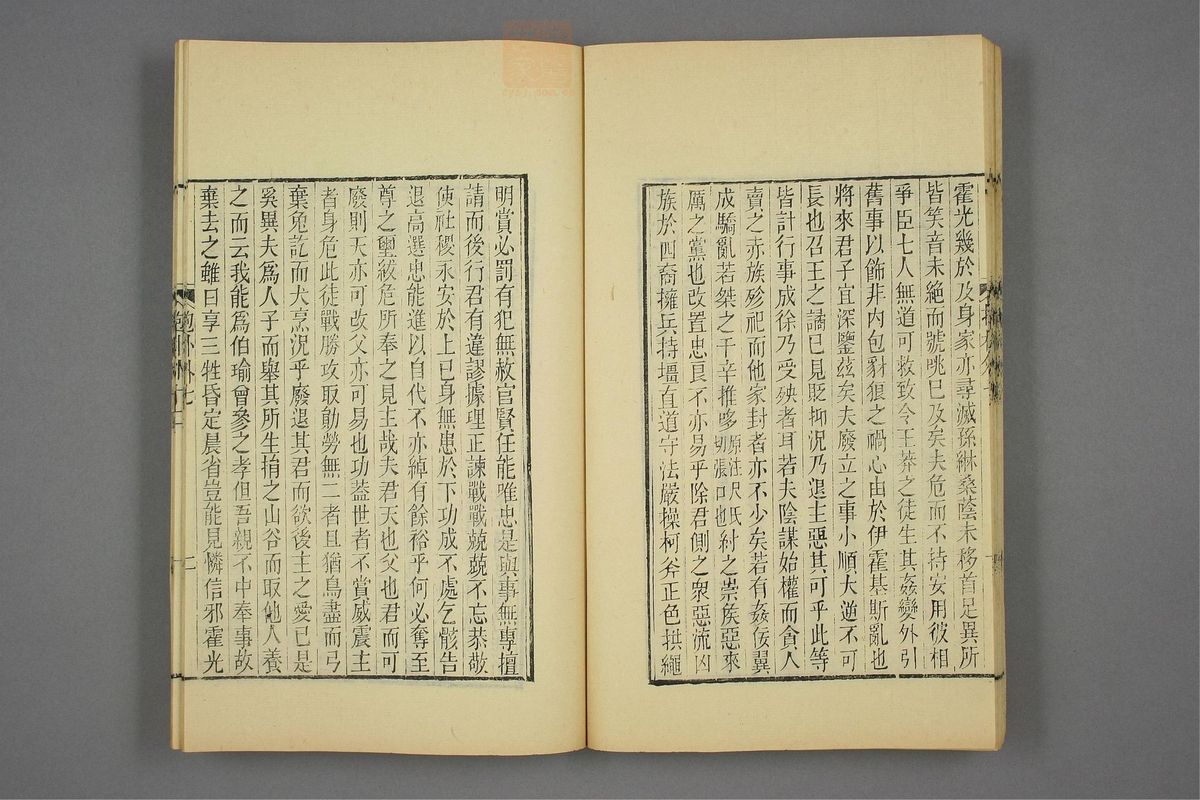 霍光幾於及身家亦尋滅孫綝桑蔭未移首足異所
皆笑音未絕而號咷已及矣夫危而不持安用彼相
爭臣七人無道可救致令王莽之徒生其姦變外引
舊事以飾非內包豺狼之禍心由於伊霍基斯亂也
將來君子宜深鑒茲矣夫廢立之事小順大逆不可
長也召王之譎已見貶抑況乃退主惡其可乎此等
皆計行事成徐乃受殃者耳若夫陰謀始權而貪人
賣之赤族殄祀而他家封者亦不少矣若有姦佞翼
成驕亂若桀之干辛推哆原注尺氏切張口也紂之崇侯惡來
厲之黨也改置忠良不亦易乎除君側之衆惡流凶
族於四裔擁兵持壃直道守法嚴操柯斧正色拱繩
明賞必罰有犯無赦官賢任能唯忠是與事無專擅
請而後行君有違謬據理正諫戰戰兢兢不忘恭敬
使社稷永安於上已身無患於下功成不處乞骸告
退高選忠能進以自代不亦綽有餘裕乎何必奪至
尊之璽紱危所奉之見主哉夫君天也父也君而可
廢則天亦可改父亦可易也功蓋世者不賞威震主
者身危此徒戰勝攻取勛勞無二者且猶鳥盡而弓
棄兔訖而犬烹況乎廢退其君而欲後主之愛已是
奚異夫為人子而舉其所生捐之山谷而取他人養
之而云我能為伯瑜曾參之孝但吾親不中奉事故
棄去之雖日享三牲昏定晨省豈能見憐信邪霍光
抱卜外七